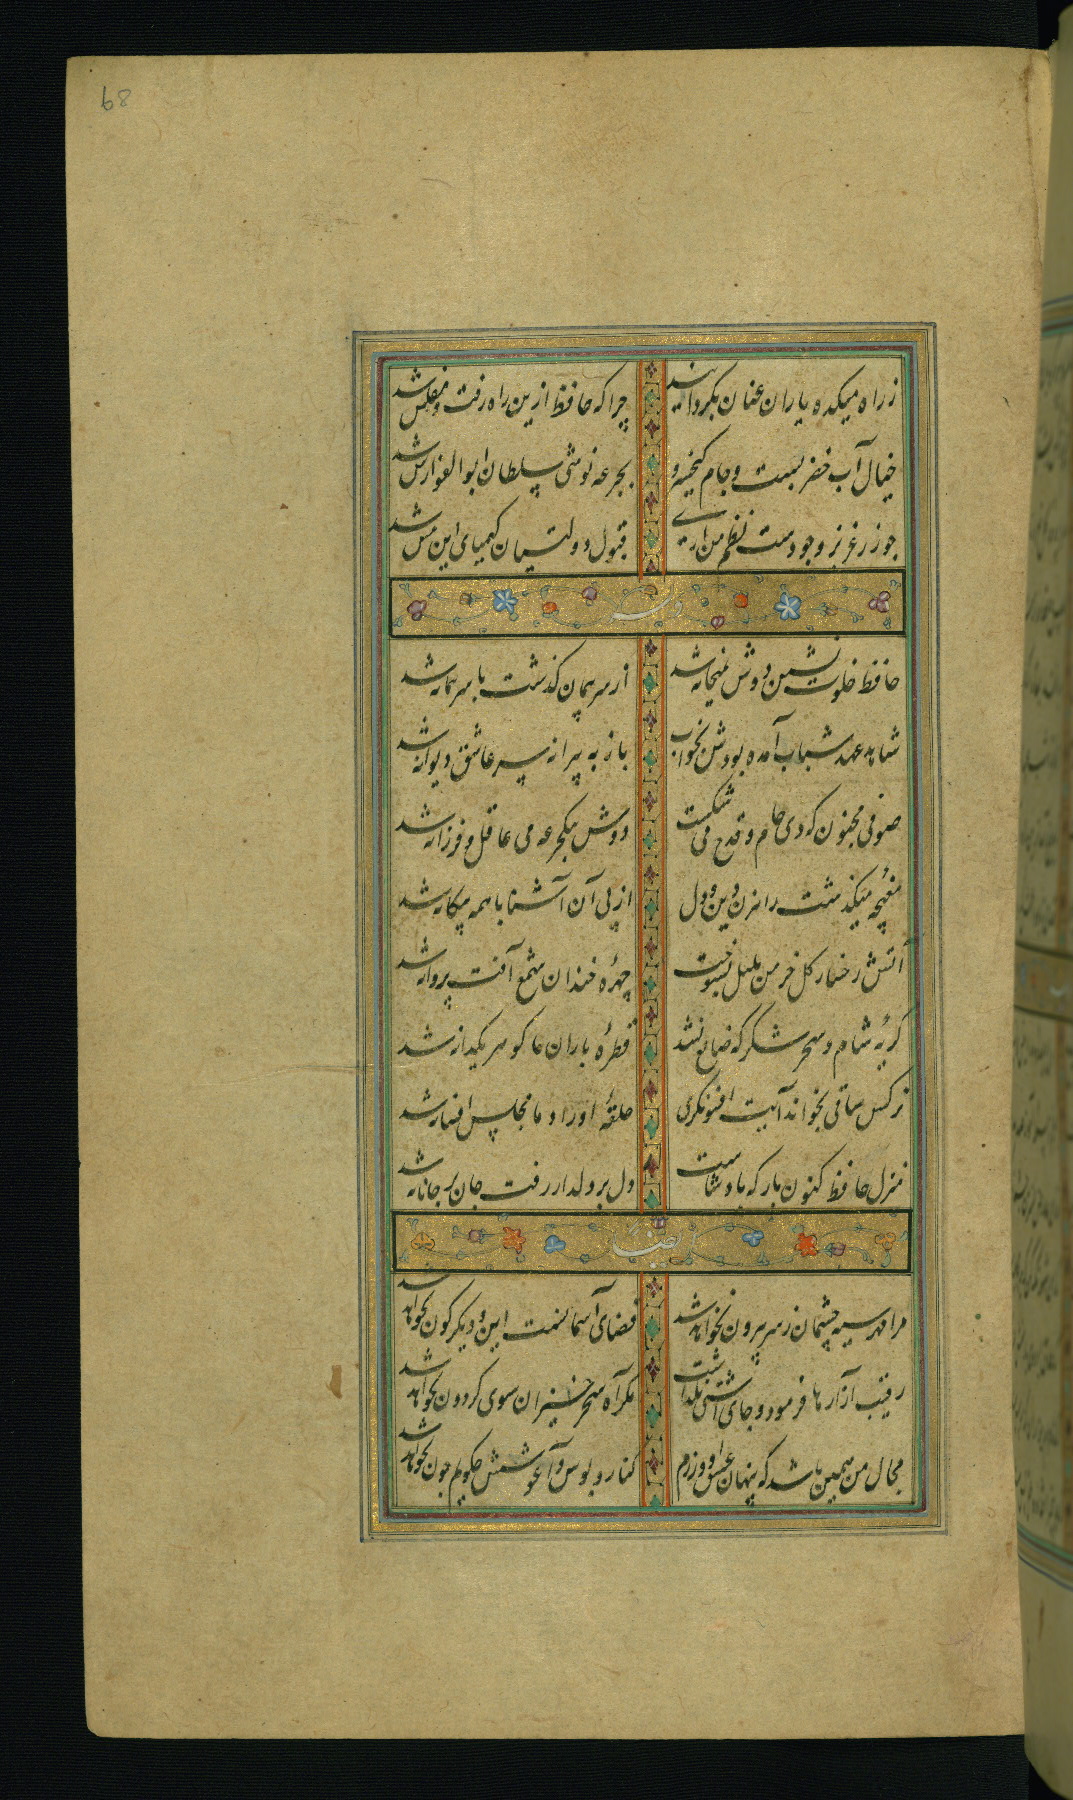 68
ز راه میکده یاران عنان بگردانید چرا که حافظ ازین راه رفت و مفلس شد
خیال آب خضر بست و جام کیخسرو بجرعه نوشی سلطان ابوالفوارس شد
چو زر عزیز وجودست نظم من آری قبول دولتیان کیمیای این مس شد
وله
حافظ خلوت نشین دوش بمیخانه شد از سر پیمان گذشت با سر پیمانه شد
شاهد عهد شباب آمده بودش بخواب باز به پیرانه سر عاشق و دیوانه شد
صوفی مجنون که دی جام و قدح می شکست دوش بیکجرعه می عاقل و فرزانه شد
مغبچهٔ میگذشت راهزن دین و دل از پی آن آشنا با همه بیگانه شد
آتش رخسار گل خرمن بلبل بسوخت چهرهٔ خندان شمع آفت پروانه شد
گریهٔ شام و سحر شکر که ضایع نشد قطرهٔ باران ما گوهر یکدانه شد
نرگس ساقی بخواند آیت افسونگری حلقهٔ اوراد ما مجلس افسانه شد
منزل حافظ کنون بارگه پادشاست دل بر دلدار رفت جان بر جانانه شد
ایضا
مرا مهر سیه چشمان ز سر بیرون نخواهد شد قضای آسمانست این و دیگرگون نخواهد شد
رقیب آزارها فرمود و جای آشتی نگذاشت مگر آه سحر خیزان سوی گردون نخواهد شد
مجال من همین باشد که پنهان عشق او ورزم کنار و بوس و آغوشش چگویم چون نخواهد شد